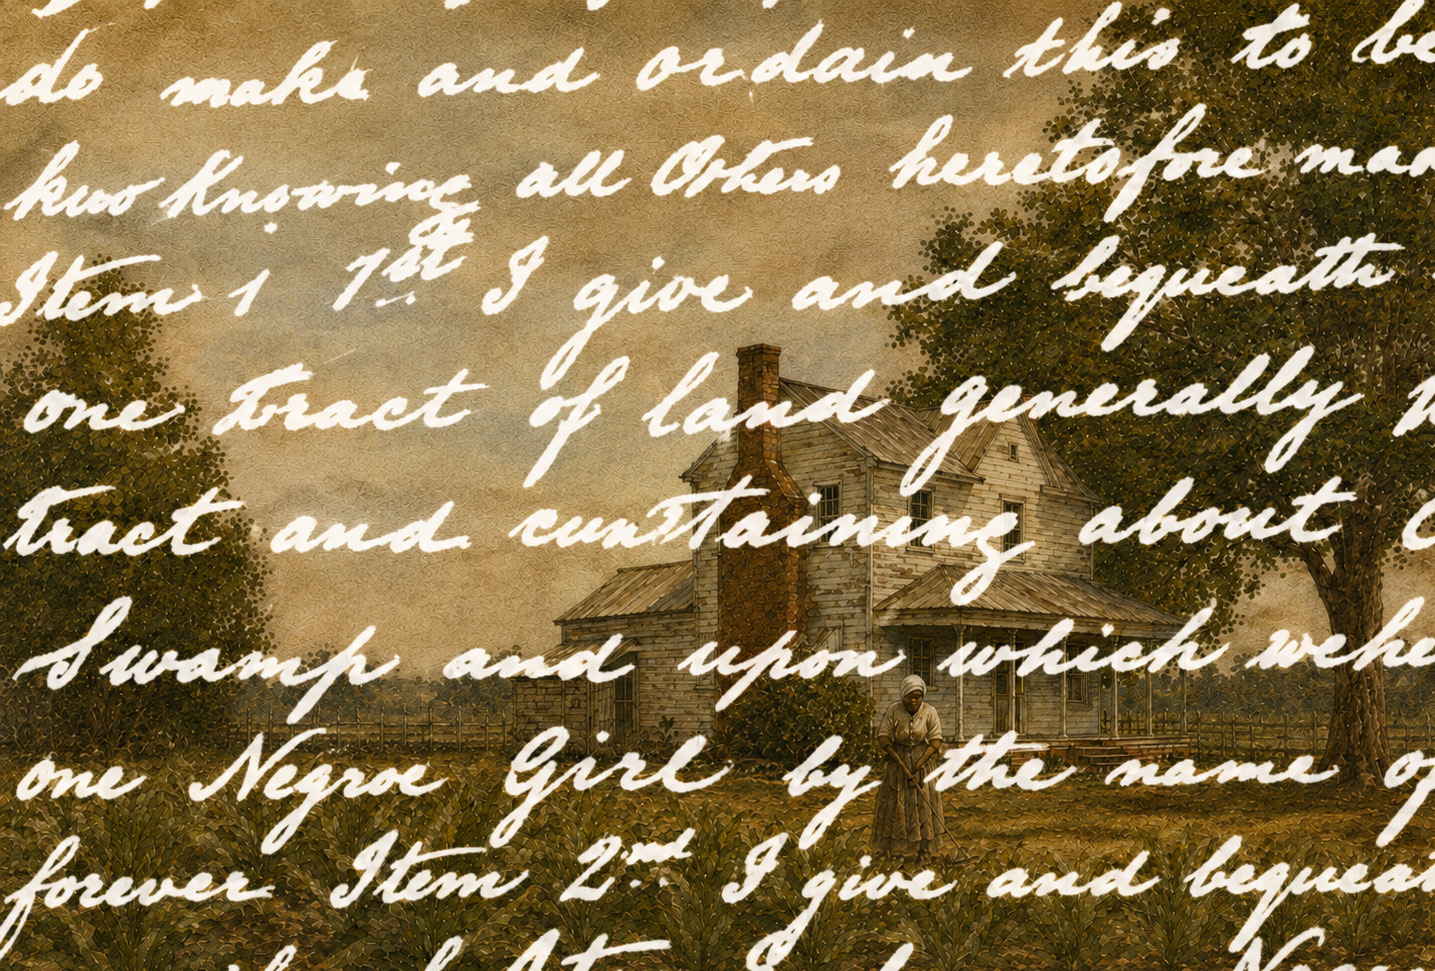 do make and ordain this to be
kuo Knowing all Others heretofore mad
Item 1 1st I give and bequeath
one tract of land generally
tract and cuntaining about
Swamp and upon which wehe
one Negroe Girl by the name of
forever Item 2nd I give and bequea